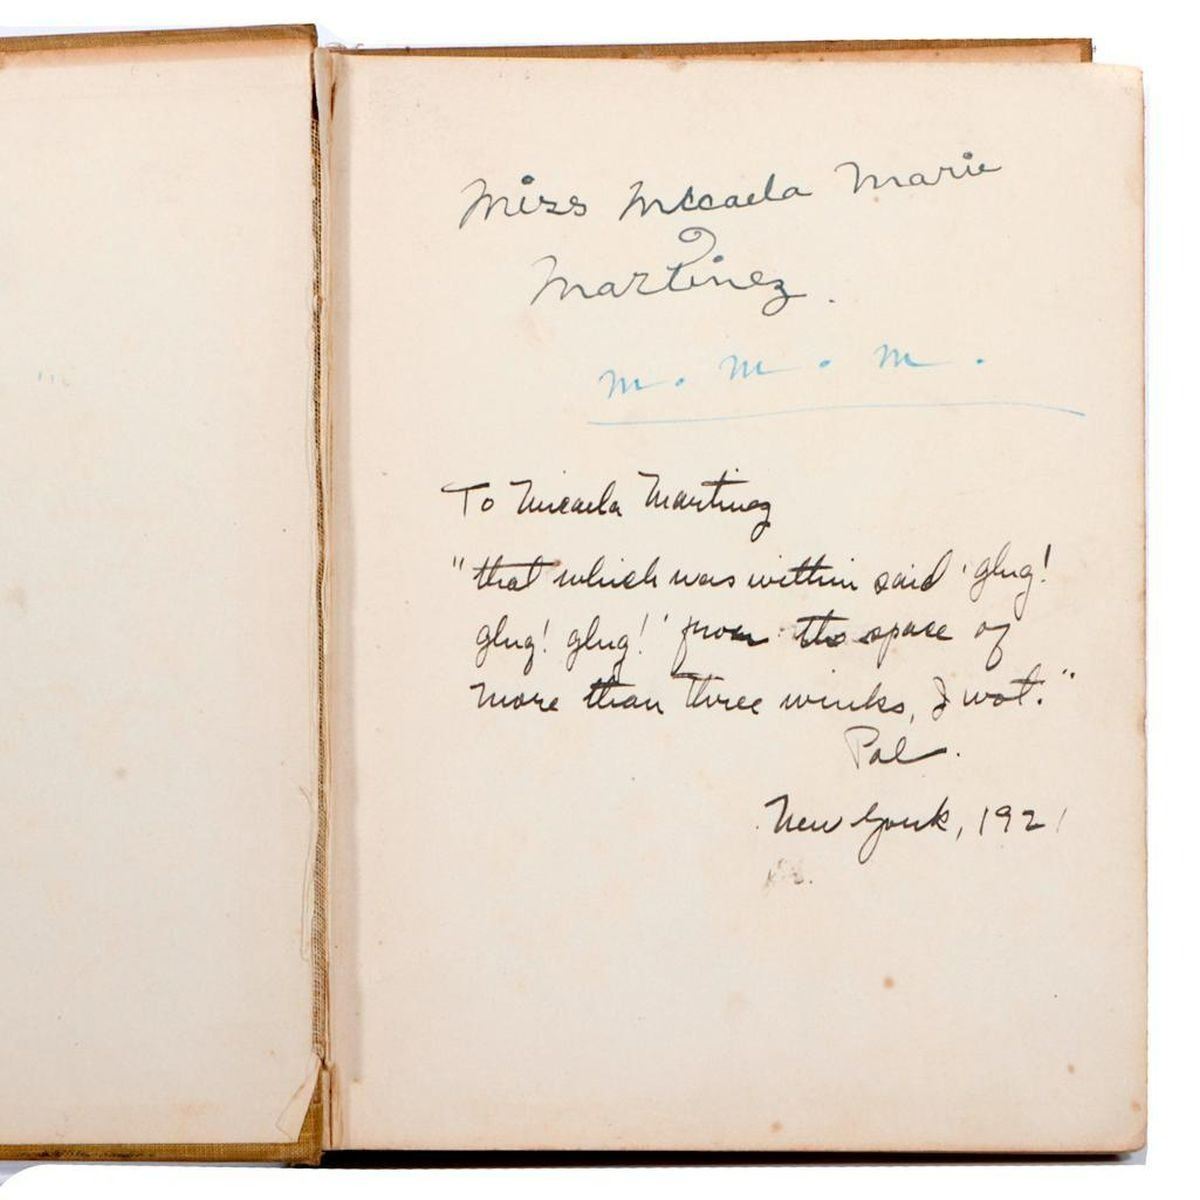 Miss Micaela Marie
Martinez.
M. M. M.
To Micaela Martinez
"that which was within said 'glug!
glug! glug!' from the space of
more than three winks, I wot."
Pal.
New York, 1921